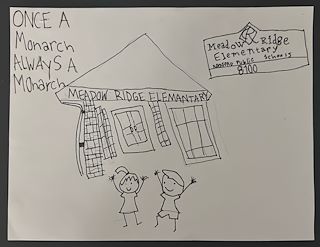 ONCE A
Monarch
ALWAYS A
MOnarch
Meadow Ridge
Elementary
Public Schools
8100
MEADOW RIDGE ELEMANTARY